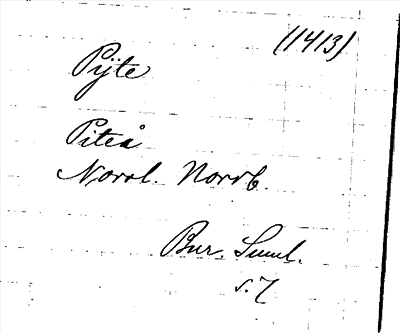 (1413)
Pijte
Piteå
Norrl. Norrb.
Bur. Suml.
s. 7